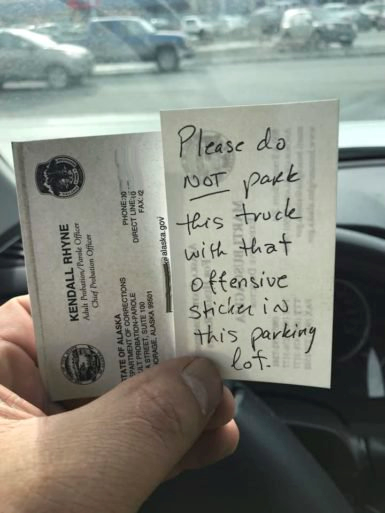 KENDALL RHYNE
Adult Probation/Parole Officer
Chief Probation Officer
PHONE:
DIRECT LINE:
FAX:
@alaska.gov
STATE OF ALASKA
DEPARTMENT OF CORRECTIONS
STREET, SUITE 100
ALASKA 99501
Please do
NOT park
this truck
with that
offensive
sticker in
this parking
lot.